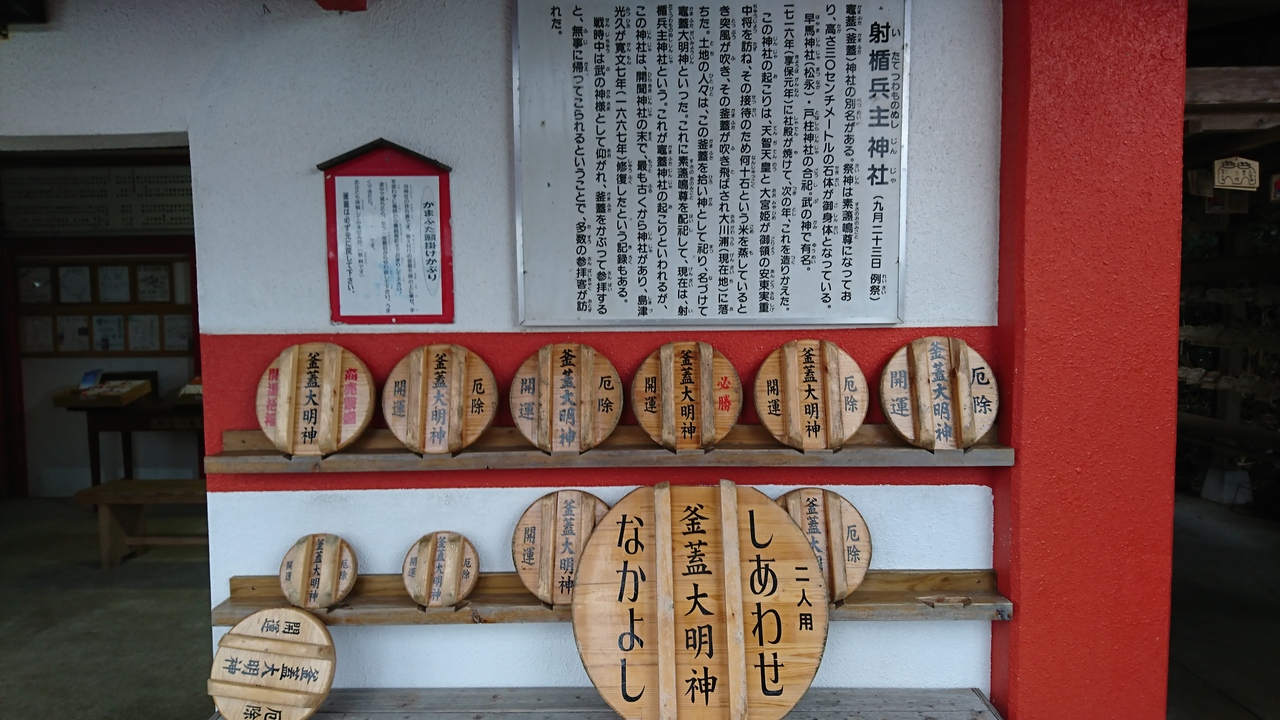 射楯兵主神社(九月二十三日 例祭)
竈蓋(釜蓋)神社の別名がある。祭神は素盞嗚尊になってお
り、高さ三〇センチメートルの石体が御身体となっている。
早馬神社(松永)・戸柱神社の合祀。武の神で有名。
一七一六年(享保元年)に社殿が焼けて、次の年、これを造りかえた。
この神社の起こりは、天智天皇と大宮姫が御領の安東実重
中将を訪ね、その接待のため何十石という米を蒸していると
き突風が吹き、その釜蓋が吹き飛ばされ大川浦(現在地)に落
ちた。土地の人々は、この釜蓋を拾い神として祀り、名づけて
竈蓋大明神といった。これに素盞嗚尊を配祀して、現在は、射
楯兵主神社という。これが竈蓋神社の起こりといわれるが、
この神社は、開聞神社の末で、最も古くから神社があり、島津
光久が寛文七年(一六六七年)修復したという記録もある。
戦時中は武の神様として仰がれ、釜蓋をかぶって参拝する
と、無事に帰ってこられるということで、多数の参拝客が訪
れた。
かまふた願掛けかぶり
釜蓋は必ず元に戻して下さい。
商売繁盛
釜蓋大明神
開運招福
厄除
釜蓋大明神
開運
厄除
釜蓋大明神
開運
必勝
釜蓋大明神
開運
厄除
釜蓋大明神
開運
厄除
釜蓋大明神
開運
厄除
釜蓋大明神
開運
厄除
釜蓋大明神
開運
釜蓋大明神
開運
二人用
しあわせ
釜蓋大明神
なかよし
厄除
釜蓋大明
厄除
釜蓋大明神
開運